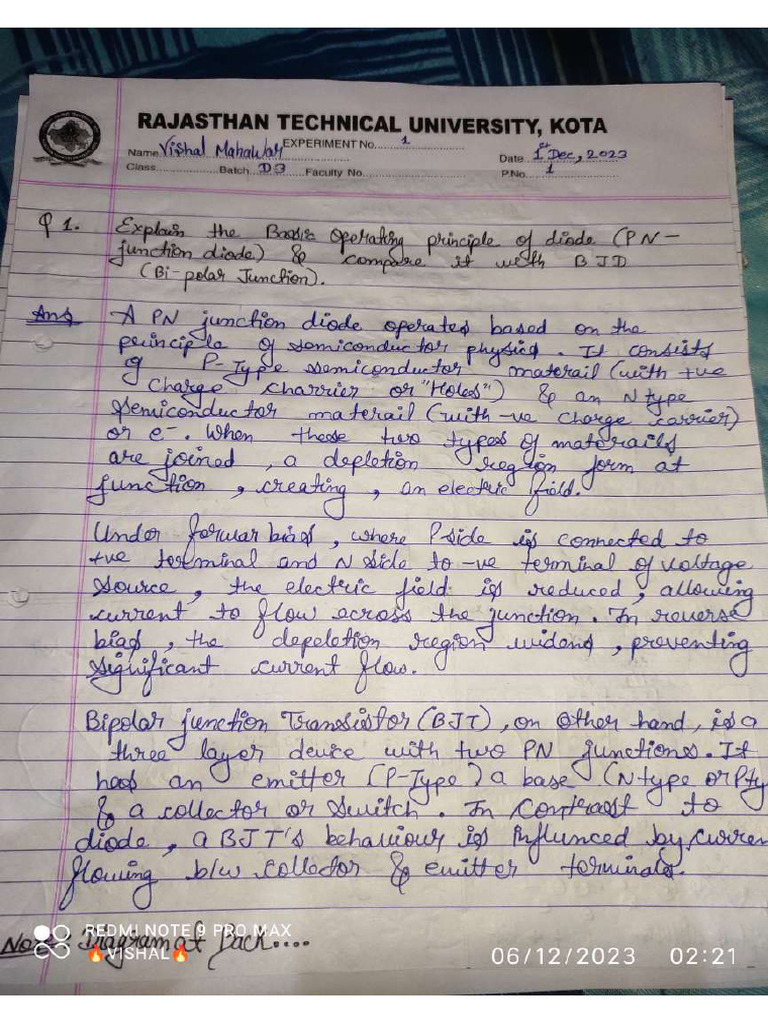 RAJASTHAN TECHNICAL UNIVERSITY, KOTA
Name Vishal Mahawar EXPERIMENT No. 1 Date 1st Dec, 2023
Class Batch D3 Faculty No. P.No. 1
Q 1. Explain the Basic Operating principle of diode (PN-
junction diode) & compare it with BJD
(Bi-polar Junction).
Ans A PN junction diode operates based on the
principle of semiconductor physics. It consists
of P-Type semiconductor materail (with +ve
charge charrier or "Holes") & an N type
semiconductor materail (with -ve charge carrier)
or e-. When these two types of materails
are joined, a depletion region form at
junction, creating, an electric field.
Under forwar bias, where P side is connected to
+ve terminal and N side to -ve terminal of voltage
source, the electric field is reduced, allowing
current to flow across the junction. In reverse
bias, the depeletion region widens, preventing
significant current flow.
Bipolar junction Transistor (BJT), on other hand, is a
three layer device with two PN junctions. It
has an emitter (P-Type) a base (N type or Pty
& a collector or switch. In contrast to
diode, a BJT's behaviour is influnced by curren
flowing b/w collector & emitter terminals.
Note: Diagram at Back....
REDMI NOTE 9 PRO MAX
🔥VISHAL🔥
06/12/2023 02:21